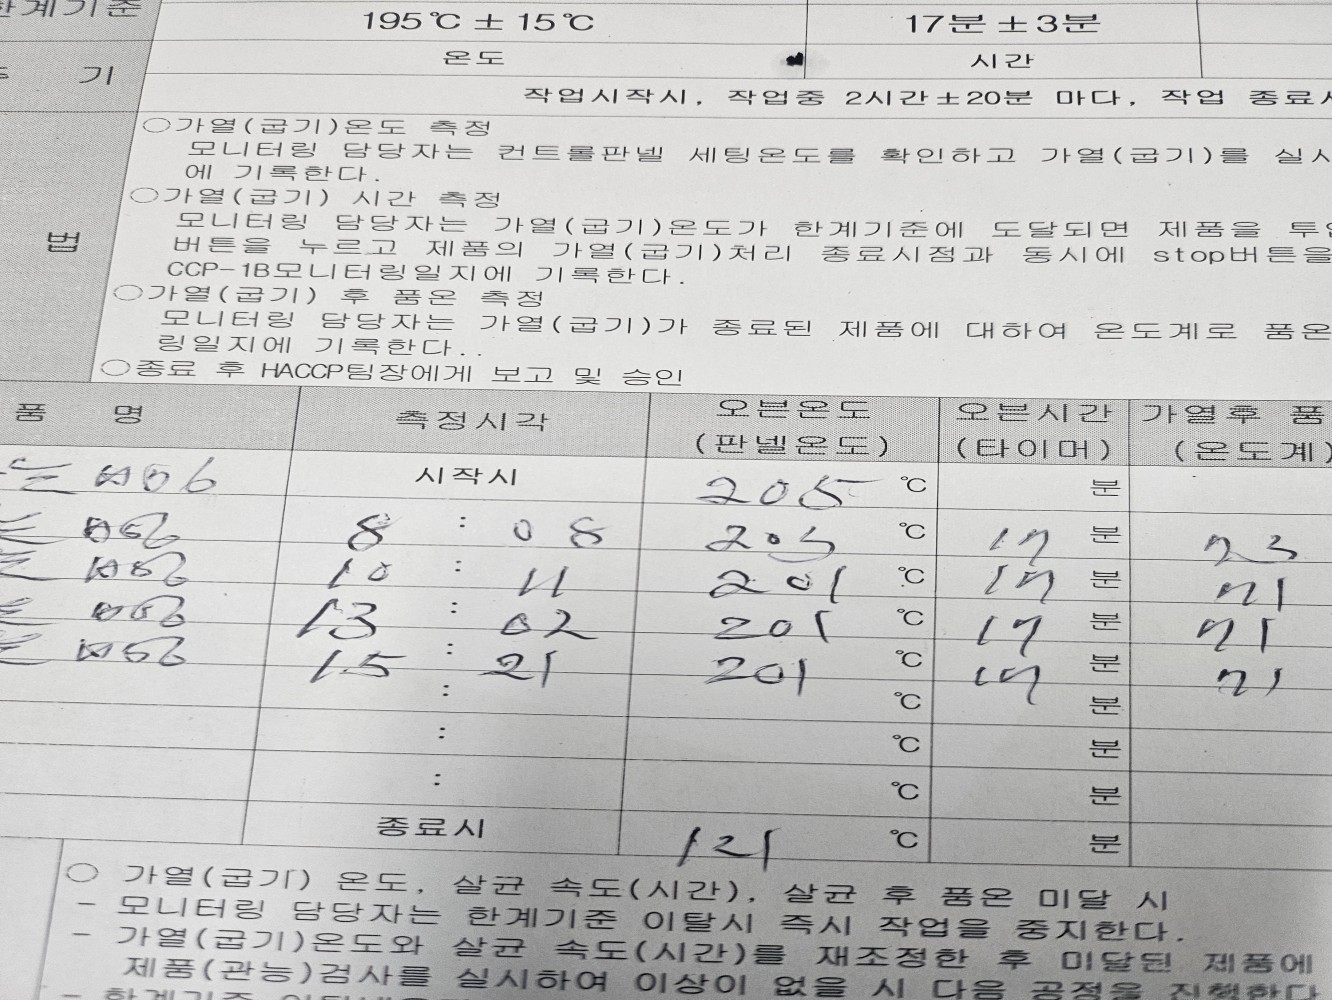 한계기준 195℃ ± 15℃ 17분 ± 3분
온도 시간
기
작업시작시, 작업중 2시간±20분 마다, 작업 종료시
○가열(굽기)온도 측정
모니터링 담당자는 컨트롤판넬 세팅온도를 확인하고 가열(굽기)를 실시
에 기록한다.
○가열(굽기) 시간 측정
모니터링 담당자는 가열(굽기)온도가 한계기준에 도달되면 제품을 투입
법 버튼을 누르고 제품의 가열(굽기)처리 종료시점과 동시에 stop버튼을
CCP-1B모니터링일지에 기록한다.
○가열(굽기) 후 품온 측정
모니터링 담당자는 가열(굽기)가 종료된 제품에 대하여 온도계로 품온
링일지에 기록한다..
○종료 후 HACCP팀장에게 보고 및 승인
품 명 측정시각 오븐온도 오븐시간 가열후 품
(판넬온도) (타이머) (온도계)
시작시 205 ℃ 분
8 : 08 203 ℃ 17 분 73
10 : 11 201 ℃ 17 분 71
13 : 02 201 ℃ 17 분 71
15 : 21 201 ℃ 17 분 71
: ℃ 분
: ℃ 분
: ℃ 분
종료시 121 ℃ 분
○ 가열(굽기) 온도, 살균 속도(시간), 살균 후 품온 미달 시
- 모니터링 담당자는 한계기준 이탈시 즉시 작업을 중지한다.
- 가열(굽기)온도와 살균 속도(시간)를 재조정한 후 미달된 제품에
제품(관능)검사를 실시하여 이상이 없을 시 다음 공정을 진행한다